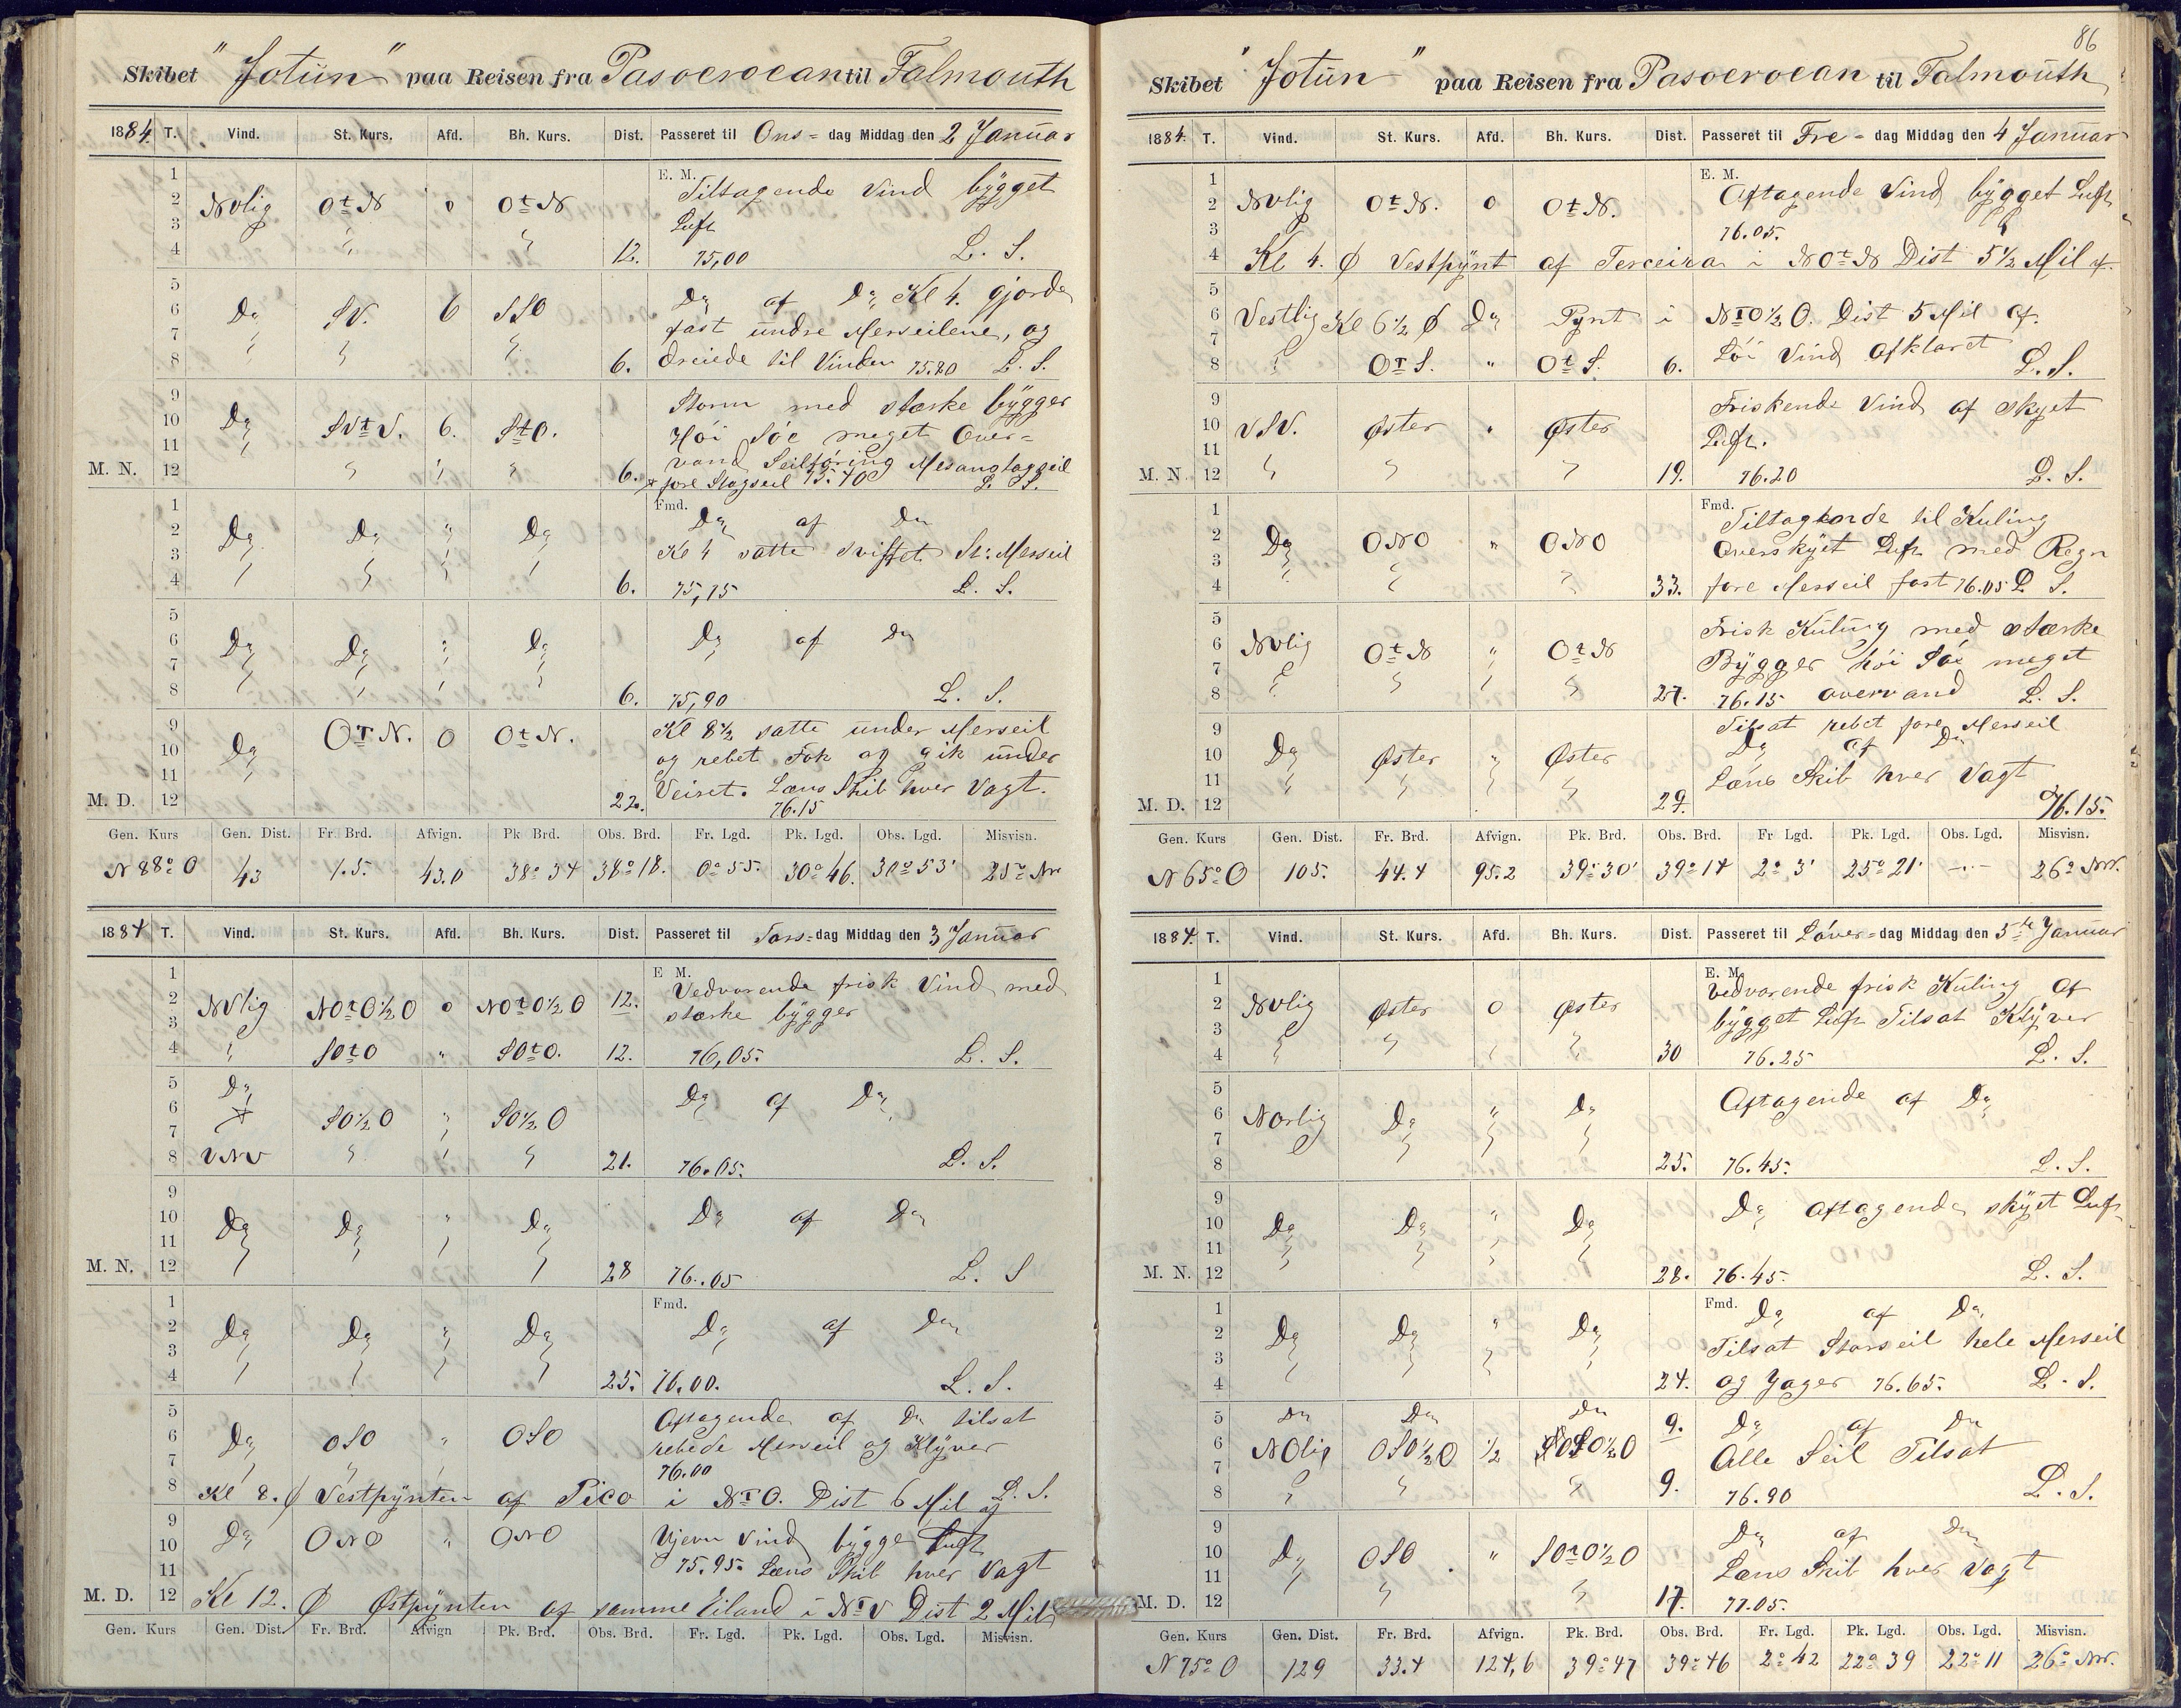 Skibet "Jotun" paa Reisen fra Pasoeroean til Falmouth
1884. T. Vind. St. Kurs. Afd. Bh. Kurs. Dist. Passeret til Ons= dag Middag den 2 Januar
1 E. M. Tiltagende Vind bygget
2 NVlig OtN o OtN
3 Luft
4 " " 12. 75,00 L. S.
5 Do af Do Kl 4. gjorde
6 Do SV. 6 SSO
7 fast undre Merseilene, og
8 " " " 6. dreiede til Vinden 75.80 L. S.
9 Storm med stærke bygger
10 Do SVtV. 6. StO. Höi Söe meget Over=
11 vand Seilföring Mesanstagseil
M. N. 12 " " " 6. + fore Stagseil 75.70 L. S.
1 Fmd. Do af Do
2 Do Do " Do
3 Kl 4 satte Sviftet St: Merseil
4 6. 75,75 L. S.
5
6 Do Do " Do Do af Do
7
8 6. 75,90 L. S.
9 OTN. O OtN. Kl 8½ satte under Merseil
10 Do og rebet Fok og gik under
11 Veiret. Læns Skib hver Vagt.
M. D. 12 22. 76.15
Gen. Kurs Gen. Dist. Fr. Brd. Afvign. Pk. Brd. Obs. Brd. Fr. Lgd. Pk. Lgd. Obs. Lgd. Misvisn.
N 88° O 43 1.5. 43.0 38° 34 38° 18. 0° 55. 30° 46. 30° 53' 25° Nv.
1884 T. Vind. St. Kurs. Afd. Bh. Kurs. Dist. Passeret til Tors= dag Middag den 3 Januar
1 E M. Vedvarende frisk Vind med
2 NVlig NOtO½O o NOtO½O 12. stærke bygger
3
4 " SOtO " SOtO. 12. 76,05. L. S.
5 Do Do af Do
6 + SO½O " SO½O
7
8 VNV " " " 21. 76.05. L. S.
9
10 Do Do " Do Do af Do
11
M. N. 12 28 76..05 L. S
1 Fmd.
2 Do Do " Do Do af Do
3
4 25. 76.00. L. S.
5 Aftagende af Do tilsat
6 Do OSO " OSO rebede Merseil og Klyver
7 76.00
8 Kl 8. Ø Vestpynten af Pico i NTO. Dist 6 Mil af L. S.
9 Do ONO " ONO Ujevn Vind bygge Luft
10
11 75.95. Læns Skib hver Vagt
M. D. 12 Kl 12. Ø Østpynten af samme Eiland i NTV Dist 2 Mil
Gen. Kurs Gen. Dist. Fr. Brd. Afvign Pk. Brd. Obs. Brd. Fr. Lgd. Pk. Lgd. Obs. Lgd. Misvisn.
86
Skibet "Jotun" paa Reisen fra Pasoeroean til Falmouth
1884. T. Vind. St. Kurs. Afd. Bh. Kurs. Dist. Passeret til Fre= dag Middag den 4 Januar
1 E. M. Aftagende Vind bygget Luft
2 NVlig OtN. o OtN.
3 76.05.
4 Kl 4. Ø Vestpynt af Terceira i NOtN Dist 5½ Mil af.
5
6 Vestlig Kl 6½ Ø Do Pynt i NTO½O. Dist 5 Mil af.
7 Löi Vind Afklaret
8 " OTS. " OtS. 6. L. S.
9 Friskende Vind af skyet
10 VSV. Øster " Øster Luft.
11
M. N. 12 " " " 19. 76.20 L. S.
1 Fmd. Tiltagende til Kuling
2 Do ONO " ONO Overskyet Luft med Regn
3
4 " " " 33. fore Merseil fast 76.05 L. S.
5 Frisk Kuling med stærke
6 NVlig OtN " OtN Bygger höi Söe meget
7
8 " " " " 27. 76.15 overvand L. S.
9 Tilsat rebet fore Merseil
10 Do Øster " Øster Do af Do
11 Læns Skib hver Vagt
M. D. 12 29. 76.15.
Gen. Kurs Gen. Dist. Fr. Brd. Afvign. Pk. Brd. Obs. Brd. Fr Lgd. Pk. Lgd. Obs. Lgd. Misvisn.
N 65° O 105. 44.4 95.2 39° 30' 39° 14 2° 3' 25° 21' —.— 26° Nv.
1884. T. Vind. St. Kurs. Afd. Bh. Kurs. Dist. Passeret til Löver= dag Middag den 5te Januar
1 E. M. Vedvarende frisk Kuling af
2 NVlig Øster O Øster bygget Luft Tilsat Klyver
3
4 " " " " 30 76.25 L. S.
5 Aftagende af Do
6 Norlig Do " Do
7
8 25. 76.45. L. S.
9 Do aftagende skyet Luft
10 Do Do " Do
11
M. N. 12 28. 76.45. L. S.
1 Fmd. Do af Do
2 Do Do " Do Tilsat Storseil hele Merseil
3
4 24. og Jager 76.65. L. S.
5 Do Do Do 9. Do af Do
6 NOlig OSO½O ½ SO½O Alle Seil Tilsat
7
8 " " " 9. 76.90 L. S.
9 Do af Do
10 Do OSO. " SOtO½O Læns Skib hver Vagt
11
M. D. 12 " " 17. 77.05.
Gen. Kurs Gen. Dist. Fr. Brd. Afvign. Pk. Brd. Obs. Brd. Fr. Lgd. Pk. Lgd. Obs. Lgd. Misvisn.
N 75° O 129 33.4 124,6 39° 47 39° 46 2° 42 22° 39 22° 11 26° Nv.